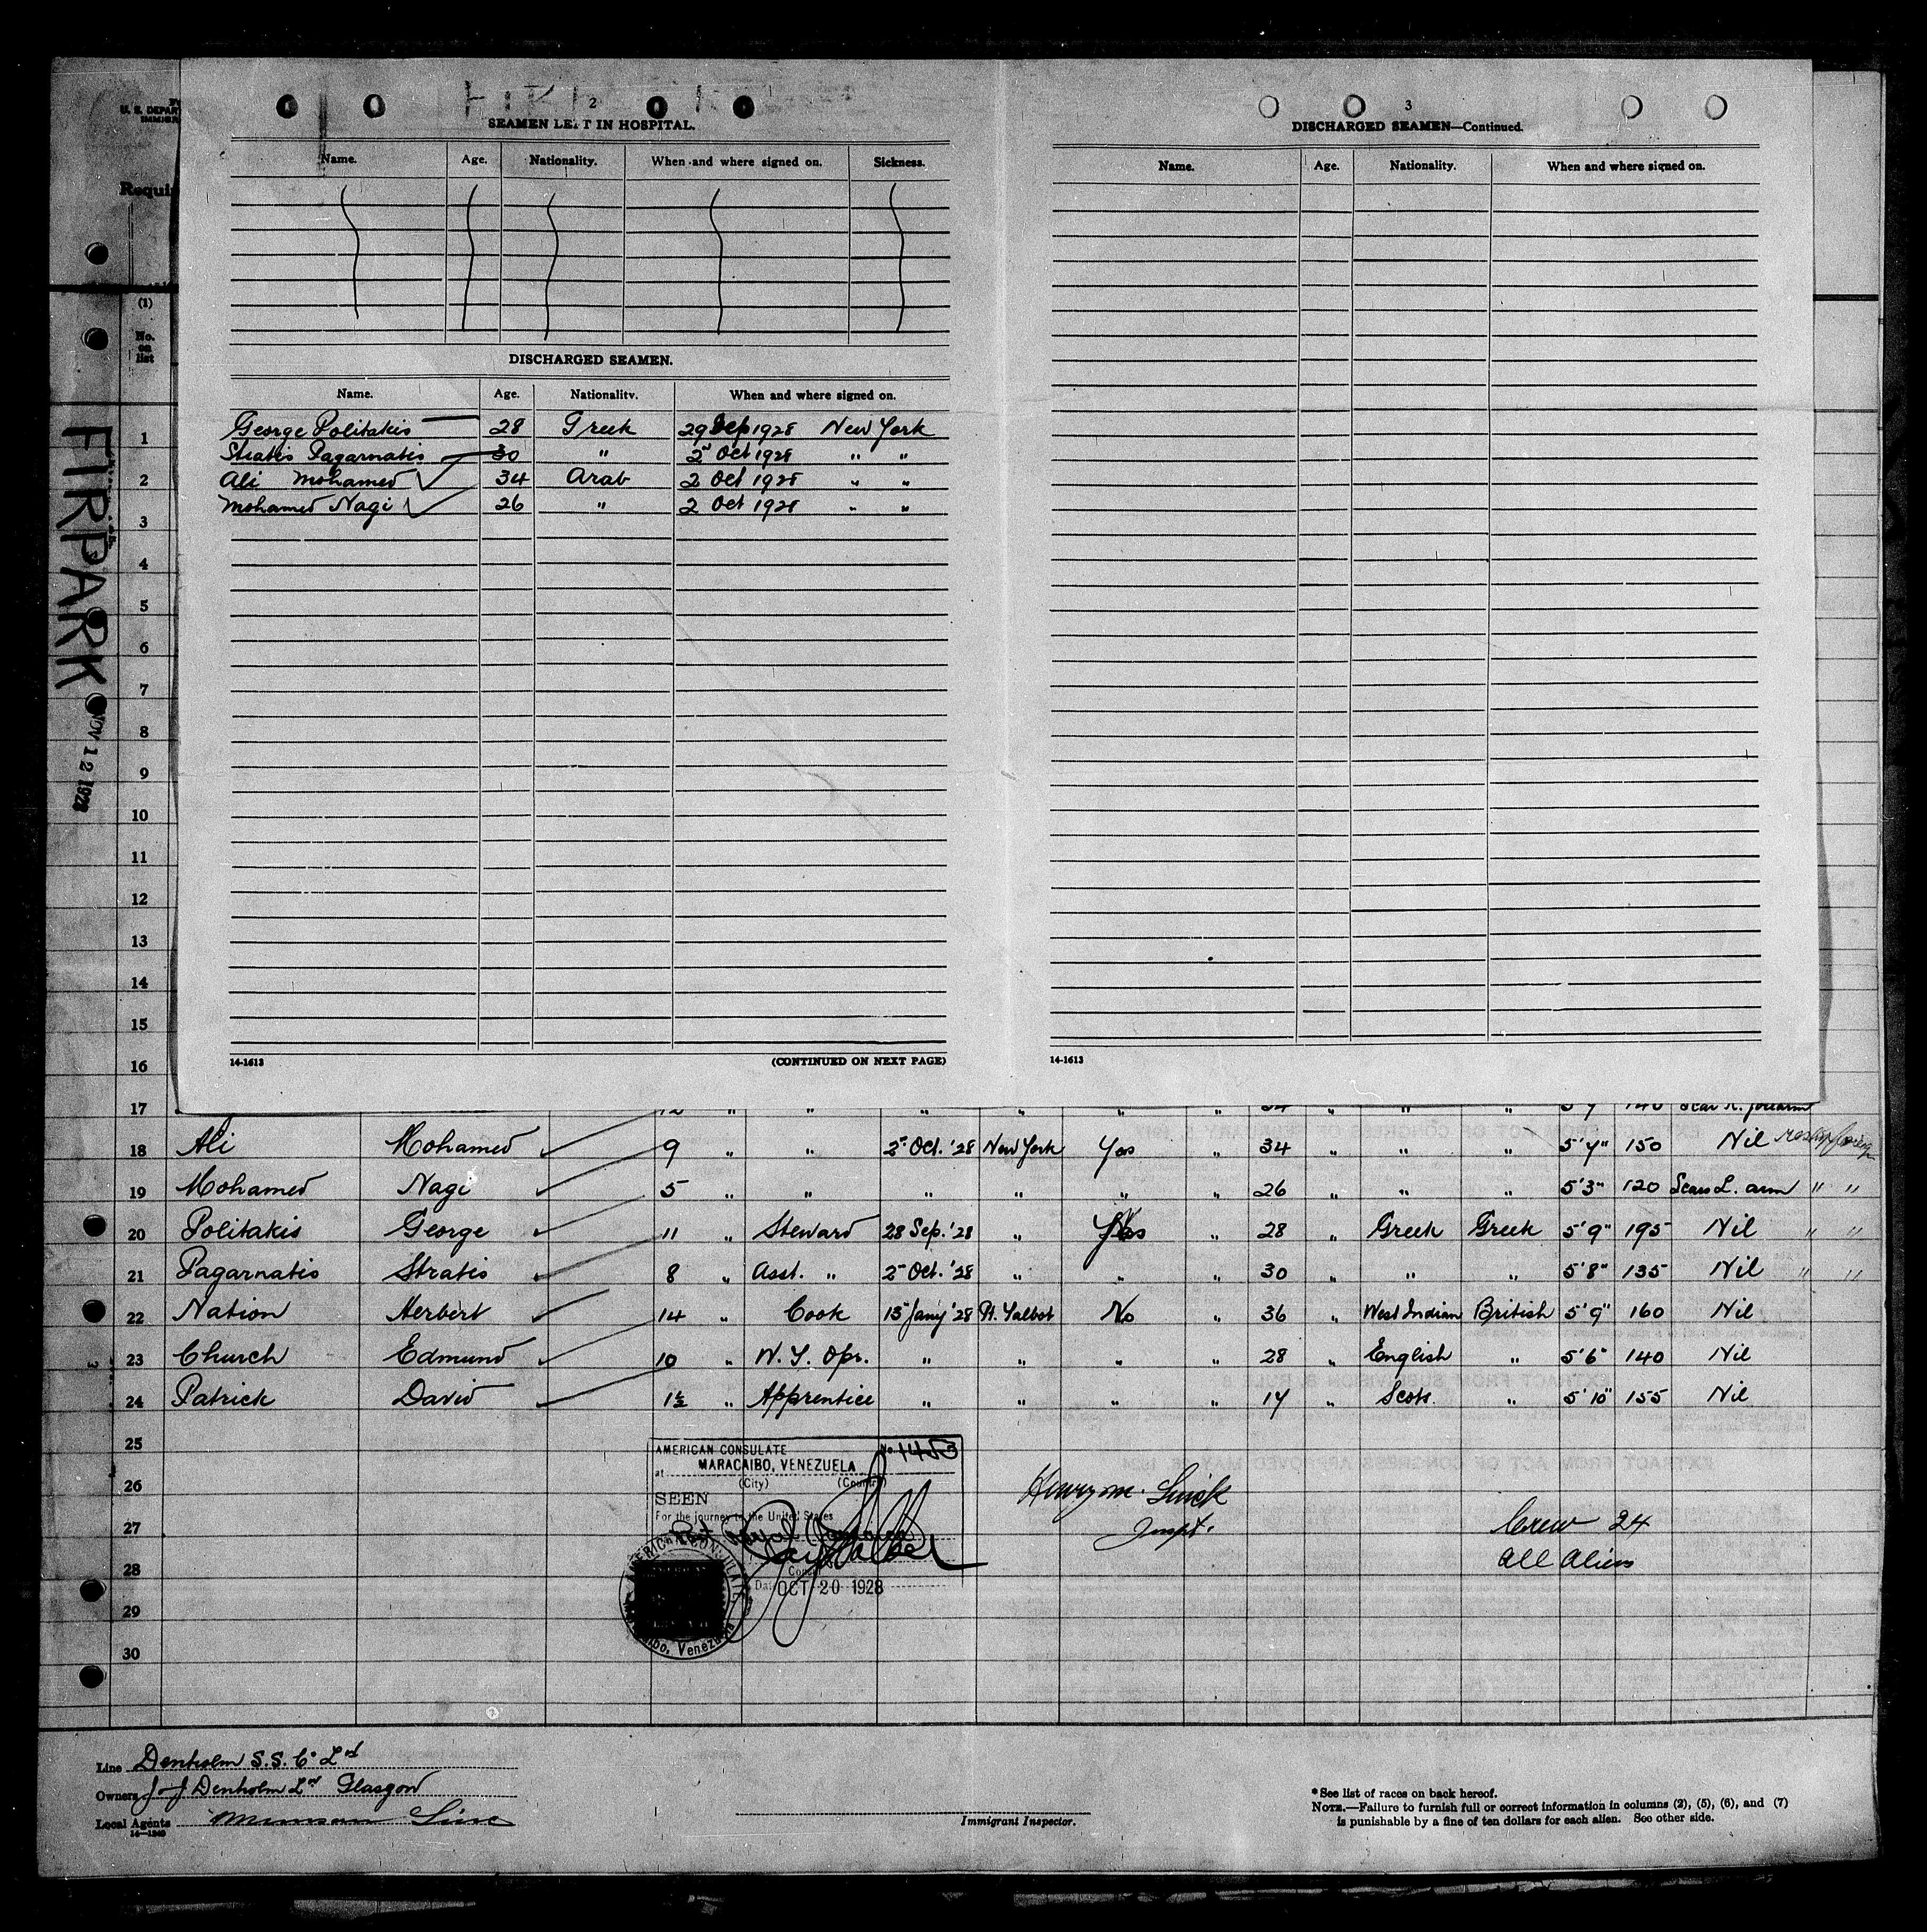 2
SEAMEN LEFT IN HOSPITAL.
Name. Age. Nationality. When and where signed on. Sickness.
DISCHARGED SEAMEN.
Name. Age. Nationality. When and where signed on.
George Politakis 28 Greek 29 Sep 1928 New York
Stratis Pagarnatis 30 " 2 Oct 1928 " "
Ali Mohamed 34 Arab 2 Oct 1928 " "
Mohamed Nagi 26 " 2 Oct 1928 " "
14-1613 (CONTINUED ON NEXT PAGE)
3
DISCHARGED SEAMEN—Continued.
Name. Age. Nationality. When and where signed on.
14-1613
U. S. DEPAR
IMMIGR
Requi
(1)
No.
on
list
FIRPARK
NOV 12 1928
1
2
3
4
5
6
7
8
9
10
11
12
13
14
15
16
17 12 " " " " " " 34 " " " 5'7 140 Scar R. forearm
18 Ali Mohamed 9 " " 2 Oct. '28 New York Yes " 34 " " " 5'4" 150 Nil
19 Mohamed Nagi 5 " " " " " " 26 " " " 5'3" 120 Scars L. arm " "
20 Politakis George 11 " Steward 28 Sep. '28 " Yes " 28 " Greek Greek 5'9" 195 Nil " "
21 Pagarnatis Stratis 8 " Asst. " 2 Oct. '28 " " " 30 " " " 5'8" 135 Nil " "
22 Nation Herbert 14 " Cook 13 Jany '28 Pt. Talbot No " 36 " West Indian British 5'9" 160 Nil
23 Church Edmund 10 " W. T. Opr. " " " " 28 " English " 5'6" 140 Nil
24 Patrick David 1½ " Apprentice " " " " 17 " Scots. " 5'10" 155 Nil
25
26
27
28
29
30
AMERICAN CONSULATE No. 1453
at MARACAIBO, VENEZUELA
(City) (Country)
SEEN
For the journey to the United States
Consul
Date OCT 20 1928
AMERICAN CONSULATE
Venezuela
Inspt.
Crew 24
All Aliens
Line Denholm S.S. Co Ltd
Owners J & J Denholm Ltd Glasgow
Local Agents Munson Line
14-1240
Immigrant Inspector.
* See list of races on back hereof.
NOTE.—Failure to furnish full or correct information in columns (2), (5), (6), and (7)
is punishable by a fine of ten dollars for each alien. See other side.